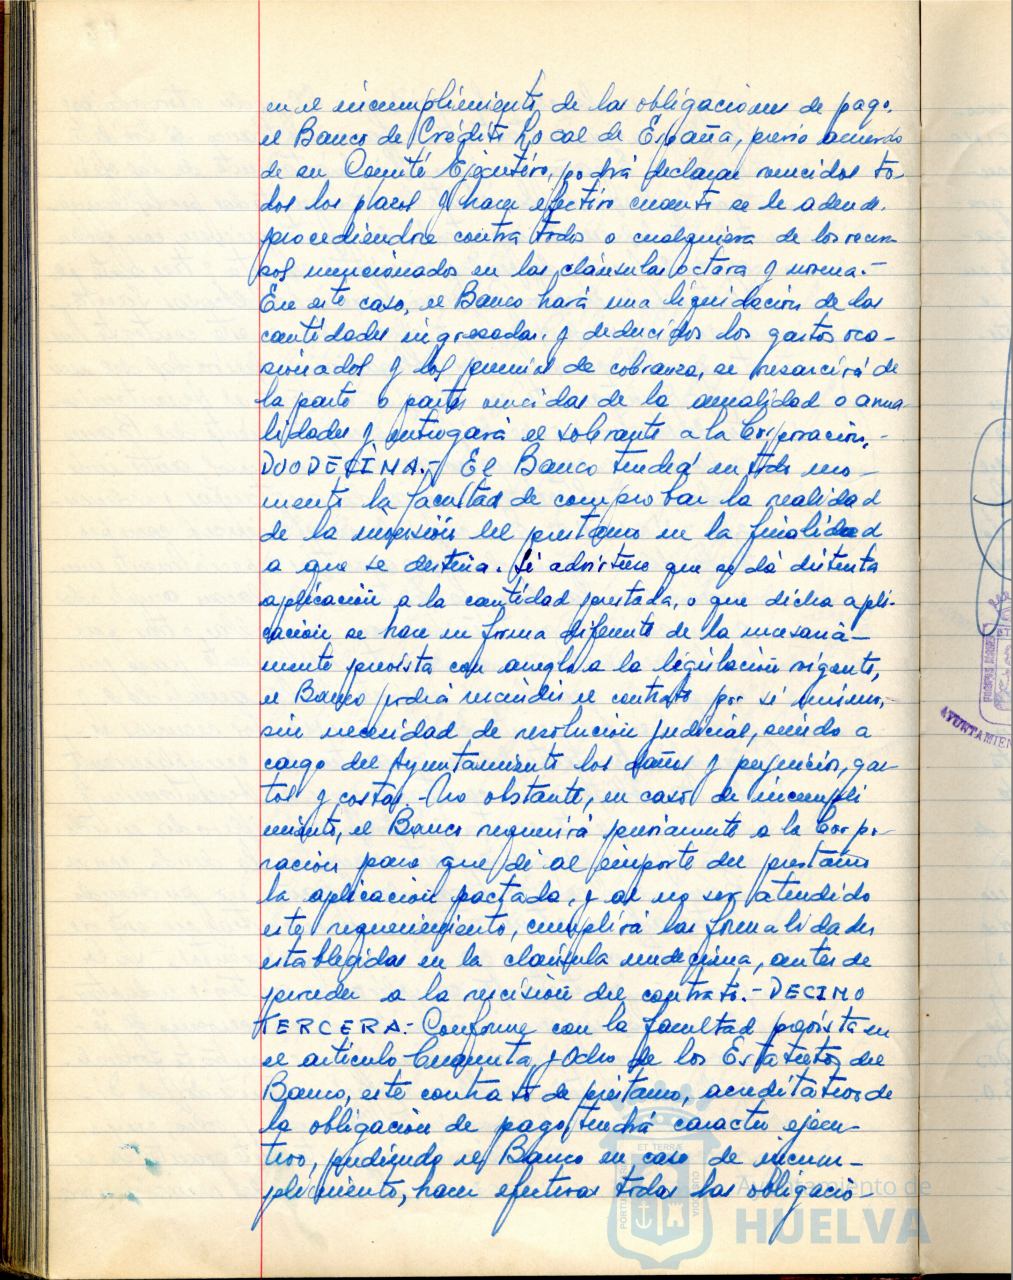 en el incumplimiento, de las obligaciones de pago,
el Banco de Crédito Local de España, previo acuerdo
de su Comité Ejecutivo, podrá declarar vencidos to-
dos los plazos y hacer efectivo cuanto se le adeude,
procediéndose contra todos o cualquiera de los recur-
sos mencionados en las cláusulas octava y novena.-
En este caso, el Banco hará una liquidación de las
cantidades ingresadas, y deducidos los gastos oca-
sionados y los premios de cobranza, se resarcirá de
la parte o partes vencidas de la anualidad o anua-
lidades y entregará el sobrante a la Corporación.-
DUODECIMA.- El Banco tendrá en todo mo-
mento la facultad de comprobar la realidad
de la inversión del prestamo en la finalidad
a que se destina. Si advirtiese que se dá distinta
aplicación a la cantidad prestada, o que dicha apli-
cación se hace en forma diferente de la necesaria-
mente prevista con arreglo a la legislación vigente,
el Banco podrá rescindir el contrato por sí mismo,
sin necesidad de resolución judicial, siendo a
cargo del Ayuntamiento los daños y perjuicios, gas-
tos y costas.- No obstante, en caso de incumpli
miento, el Banco requerirá previamente a la Corpo-
ración para que dé al importe del prestamo
la aplicación pactada, y al no ser atendido
este requerimiento, cumplirá las formalidades
establecidas en la clausula undecima, antes de
proceder a la rescisión del contrato.- DECIMO
TERCERA.- Conforme con la facultad prevista en
el artículo Cincuenta y Ocho de los Estatutos del
Banco, este contrato de préstamo, acreditativo de
la obligación de pago, tendrá caracter ejecu-
tivo, pudiendo el Banco en caso de incum-
plimiento, hacer efectivas todas las obligacio-
Ayuntamiento de
HUELVA
AYUNTAMIEN